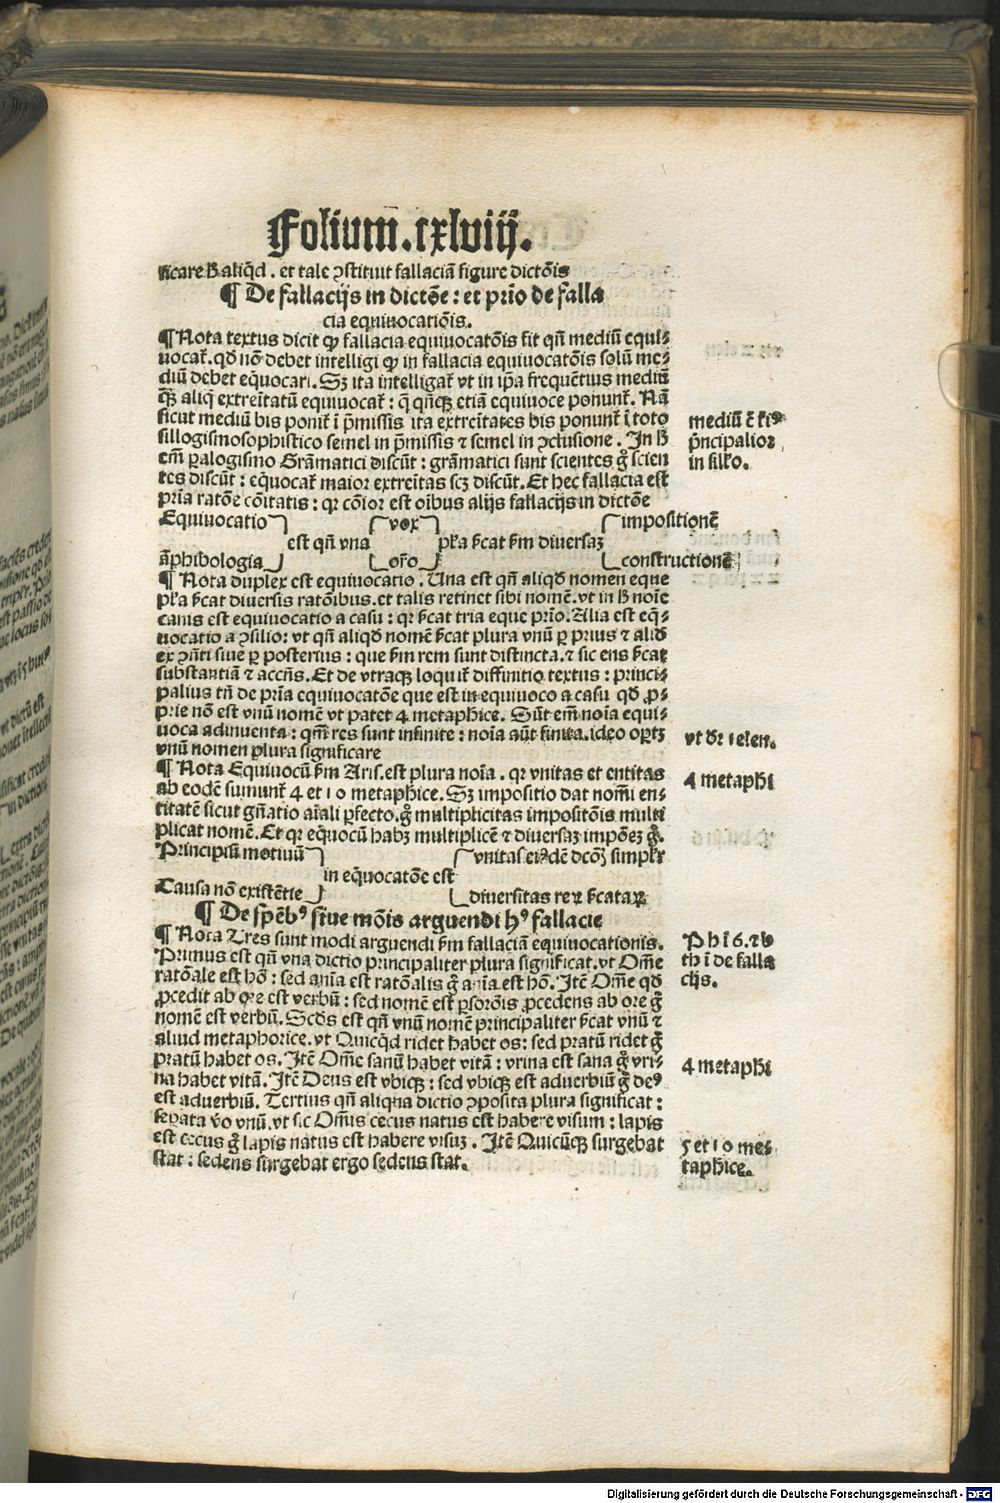 Folium.cxlviij.
ficare ħ aliqd̄. et tale ꝯstituit fallaciā figure dictōis
¶ De fallacijs in dictōe: et prio de falla
cia equiuocatiōis.
¶ Nota textus dicit ꝙ fallacia equiuocatōis fit qn̄ mediū equi⸗
uocat̄. qd̄ nō debet intelligi ꝙ in fallacia equiuocatōis solū me⸗
diū debet eq̄uocari. Sꝫ ita intelligat̄ vt in ip̄a frequētius mediū
ꝙ̄ aliq̄ extreītatū equiuocat̄: q̄ qn̄qꝫ etiā equiuoce ponunt̄. Nā
sicut mediū bis ponit̄ i p̄missis ita extreītates bis ponunt̄ ī toto
sillogismosophistico semel in p̄missis ⁊ semel in ꝯclusione. In ħ
em̄ ꝑalogismo Grāmatici discūt: grāmatici sunt scientes gͦ scien
tes discūt: equocat̄ maior extreītas scꝫ discūt. Et hec fallacia est
pria ratōe cōitatis: qr cōior est oībus alijs fallacijs in dictōe
Equiuocatio vox impositionē
est qn̄ vna pl̄ra ſ̄cat ſm diuersaꝫ
āphibologia orō constructionē
¶ Nota duplex est equiuocatio. Una est qn̄ aliqd̄ nomen eque
pl̄ra ſ̄cat diuersis ratōibus. et talis retinet sibi nomē. vt in ħ noīe
canis est equiuocatio a casu: qr ſ̄cat tria eque prio. Alia est eq̄⸗
uocatio a ꝯsilio: vt qn̄ aliqd̄ nomē ſ̄cat plura vnū ꝑ prius ⁊ alid̄
ex ꝯn̄ti siue ꝑ posterius: que ſm rem sunt distincta. ⁊ sic ens ſ̄cat
substantiā ⁊ accn̄s. Et de vtraqꝫ loquit̄ diffinitio textus: princi⸗
palius tn̄ de pria equiuocatōe que est in equiuoco a casu qd̄ ꝓ⸗
prie nō est vnū nomē vt patet 4 metaph̄ice. Sūt em̄ noīa equi⸗
uoca adinuenta: qm̄ res sunt infinite: noīa aūt finita. ideo oportꝫ
vnū nomen plura significare
¶ Nota Equiuocū ſm Aris. est plura noīa. qr vnitas et entitas
ab eodē sumunt̄ 4 et 10 metaph̄ice. Sꝫ impositio dat nomī en⸗
titatē sicut gn̄atio aīali ꝑfecto. gͦ multiplicitas impositōis multi
plicat nomē. Et qr eq̄uocū habꝫ multiplicē ⁊ diuersaꝫ impōeꝫ gͦ.
Principiū motiuū vnitas eiꝰdē dcōꝫ simpl̄r
in eq̄uocatōe est
Causa nō existētie diuersitas reꝝ ſ̄cataꝝ
¶ De spēbꝰ siue mōis arguendi hꝰ fallacie
¶ Nota Tres sunt modi arguendi ſm fallaciā equiuocationis.
Primus est qn̄ vna dictio principaliter plura significat. vt Om̄e
ratōale est hō: sed aīa est ratōalis gͦ aīa est hō. Itē Om̄e qd̄
ꝓcedit ab ore est verbū: sed nomē est ꝑsorōis ꝓcedens ab ore gͦ
nomē est verbū. Scds est qn̄ vnū nomē principaliter ſ̄cat vnū ⁊
aliud metaphorice. vt Quicqd̄ ridet habet os: sed pratū ridet gͦ
pratū habet os. Itē Om̄e sanū habet vitā: vrina est sana gͦ vri⸗
na habet vitā. Itē Deus est vbiqꝫ: sed vbiqꝫ est aduerbiū gͦ deꝰ
est aduerbiū. Tertius qn̄ aliqua dictio ꝯposita plura significat:
seꝑata v̄o vnū. vt sic Om̄is cecus natus est habere visum: lapis
est cecus gͦ lapis natus est habere visuꝫ. Itē Quicūqꝫ surgebat
stat: sedens surgebat ergo sedens stat.
p̄ncipalior
in sill̄o.
vt dr̄ 1 elen.
4 metaphi
Ph̄ i 6. ⁊ b
th i de falla
cijs.
4 metaphi
5 et 10 me⸗
taph̄ice.
Digitalisierung gefördert durch die Deutsche Forschungsgemeinschaft - DFG